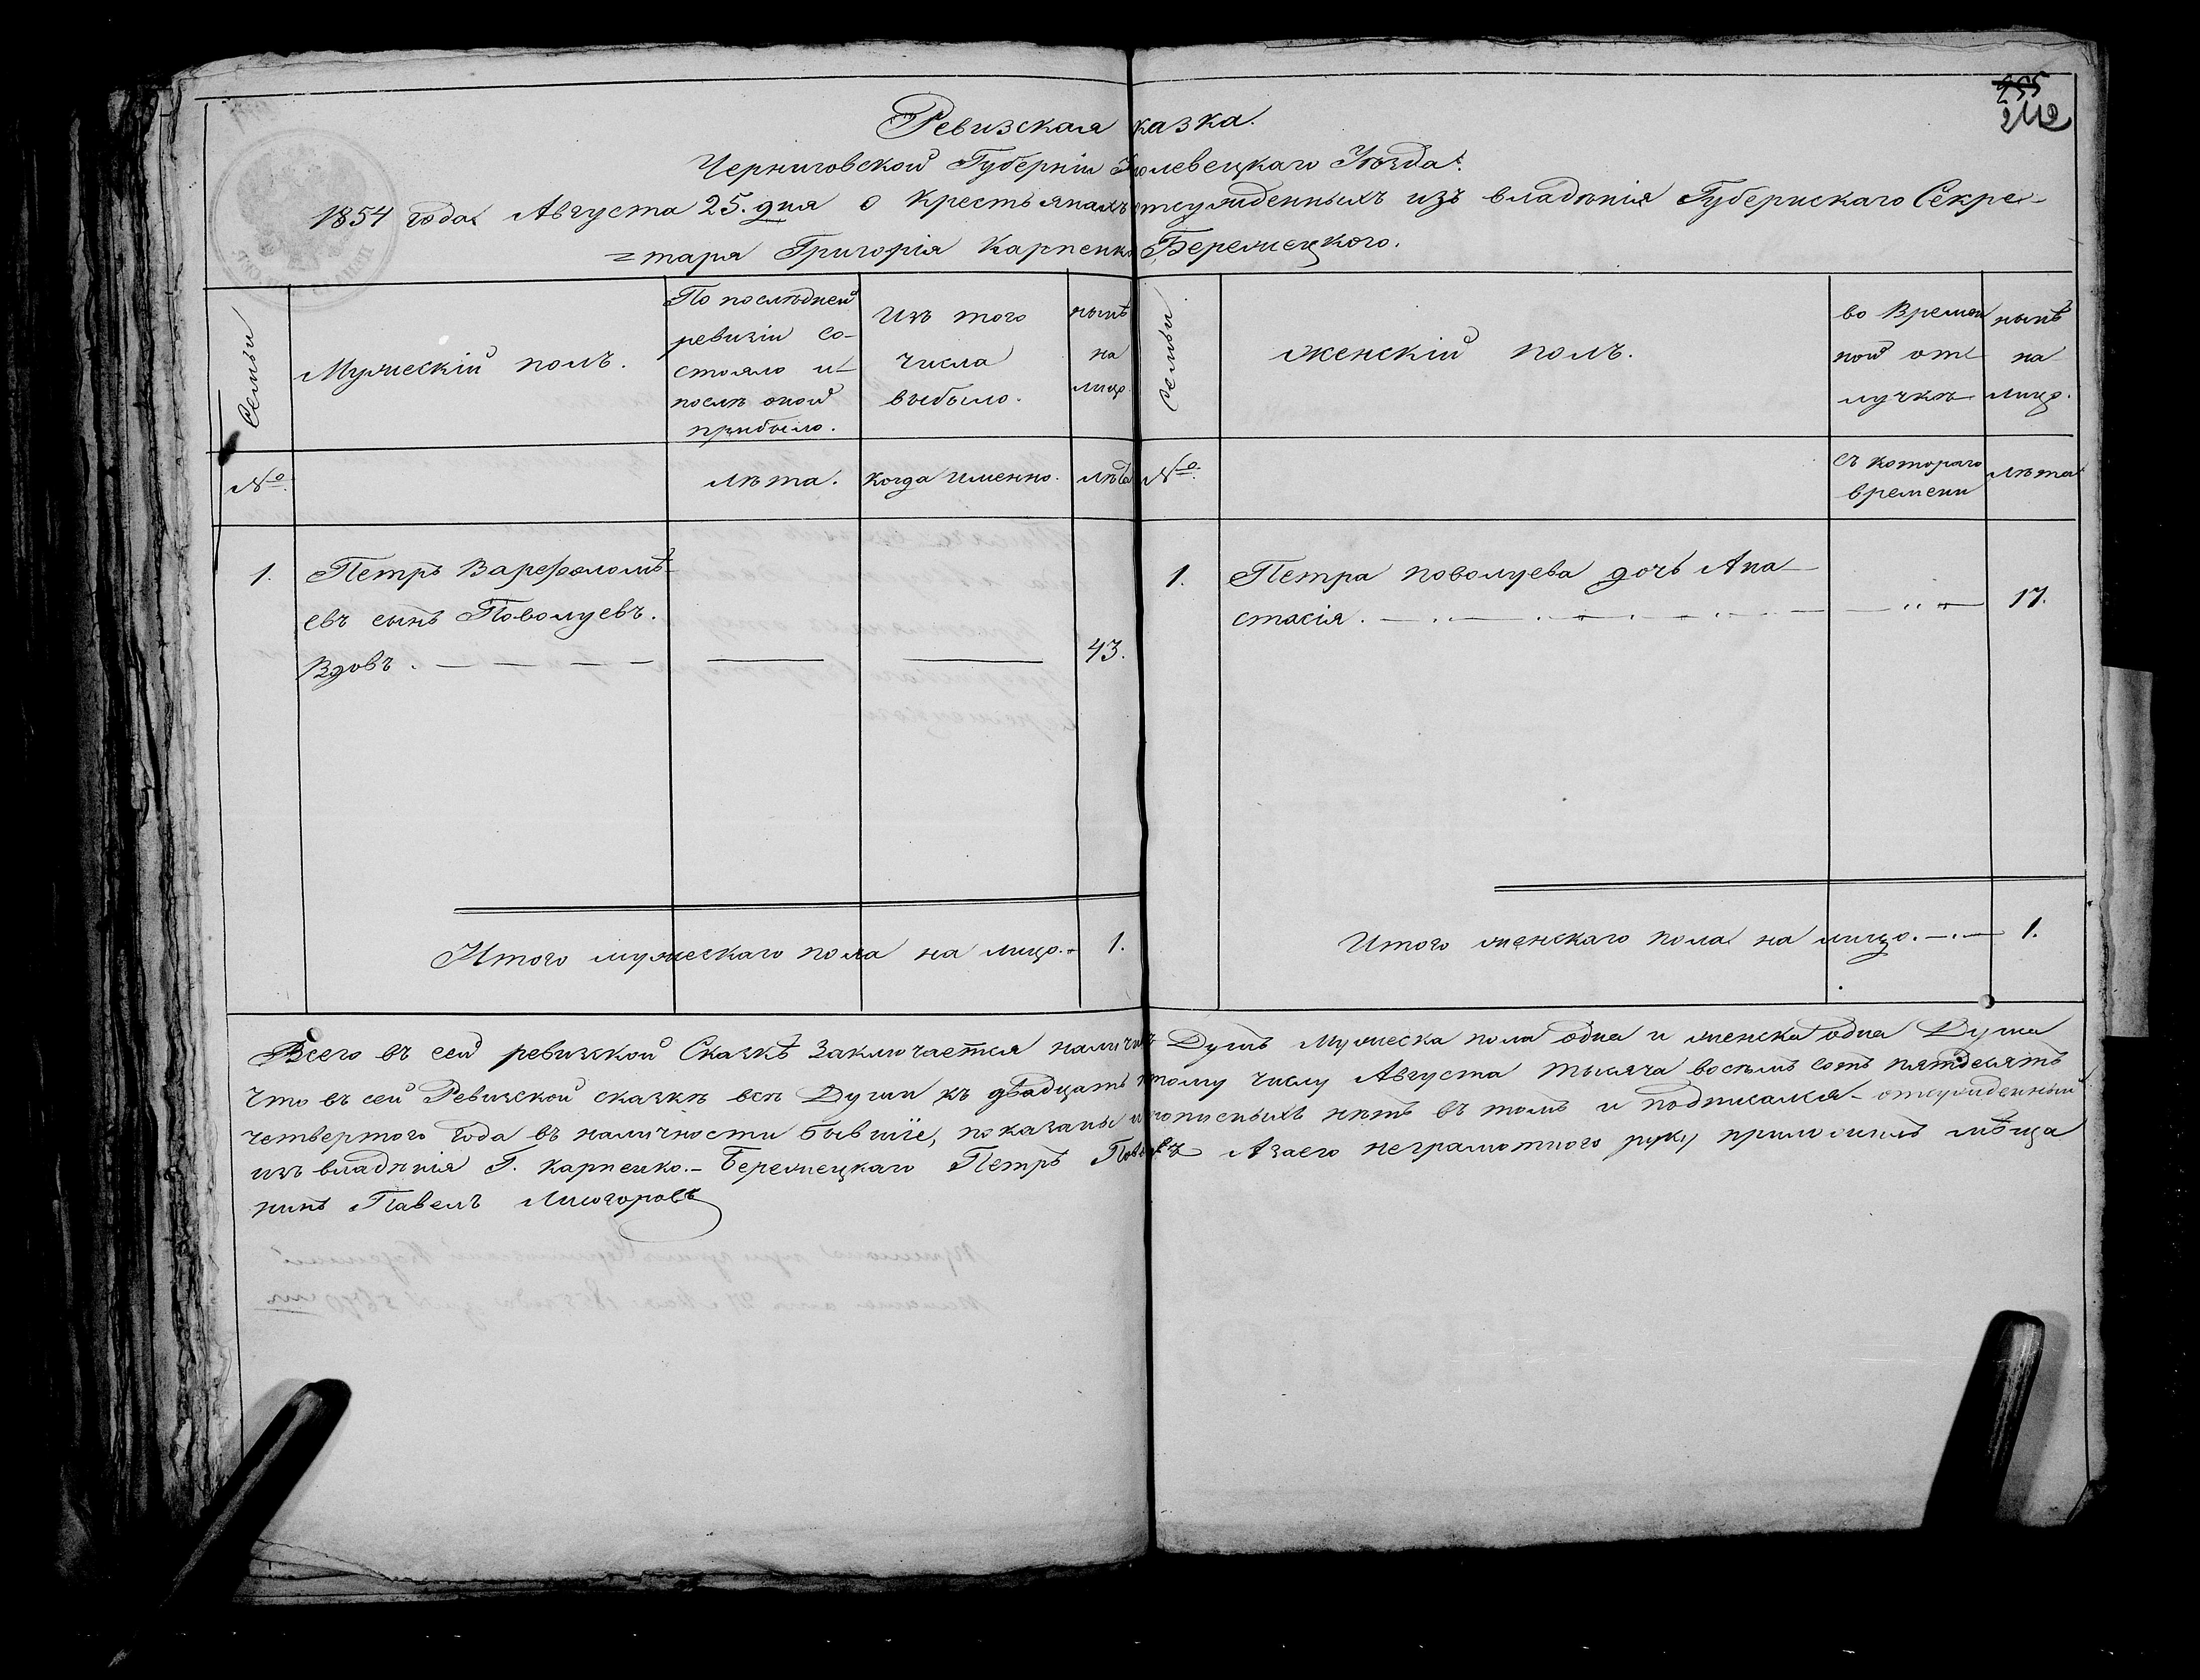 255
242
Ревизская казка.
Черниговской Губерніи Кролевецкаго Уѣзда.
1854 года Августа 25. дня о Крестьянахъ отсужденныхъ изъ владѣнія Губернскаго Секре-
=таря Григорія Карпенко Бережецкого.
Семьи
Мужескій полъ.
По послѣдней
ревизіи со-
стояло и
послѣ оной
прибыло.
Изъ того
числа
выбыло.
нынѣ
на
лицо
Семьи
женскій полъ.
во Времен
ной от
лучкѣ
нынѣ
на
лицо.
№
лѣта.
когда именно.
лѣта
№
съ котораго
времени
лѣта
1.
Петръ Варефоломѣ-
евъ сынъ Поволуевъ.
Вдовъ.
43.
1.
Петра поволуева дочь Ана
стасія.
17.
Итого мужескаго пола на лицо. 1.
Итого женскаго пола на лицо. 1.
Всего въ сей ревизской Сказкѣ Заключается наличныхъ Душъ Мужеска пола одна и женска одна Душа
Что въ сей Ревизской сказкѣ всѣ Души къ двадцать пятому числу Августа тысяча восемь сотъ пятдесятъ
четвертого года въ наличности бывшіе, показаны и прописныхъ нѣтъ въ томъ и подписался отсужденный
изъ владѣнія Г. Карпенко.-Бережецкаго Петръ Азаего неграмотного руку приложилъ мѣща
нинъ Павелъ Лисогоровъ